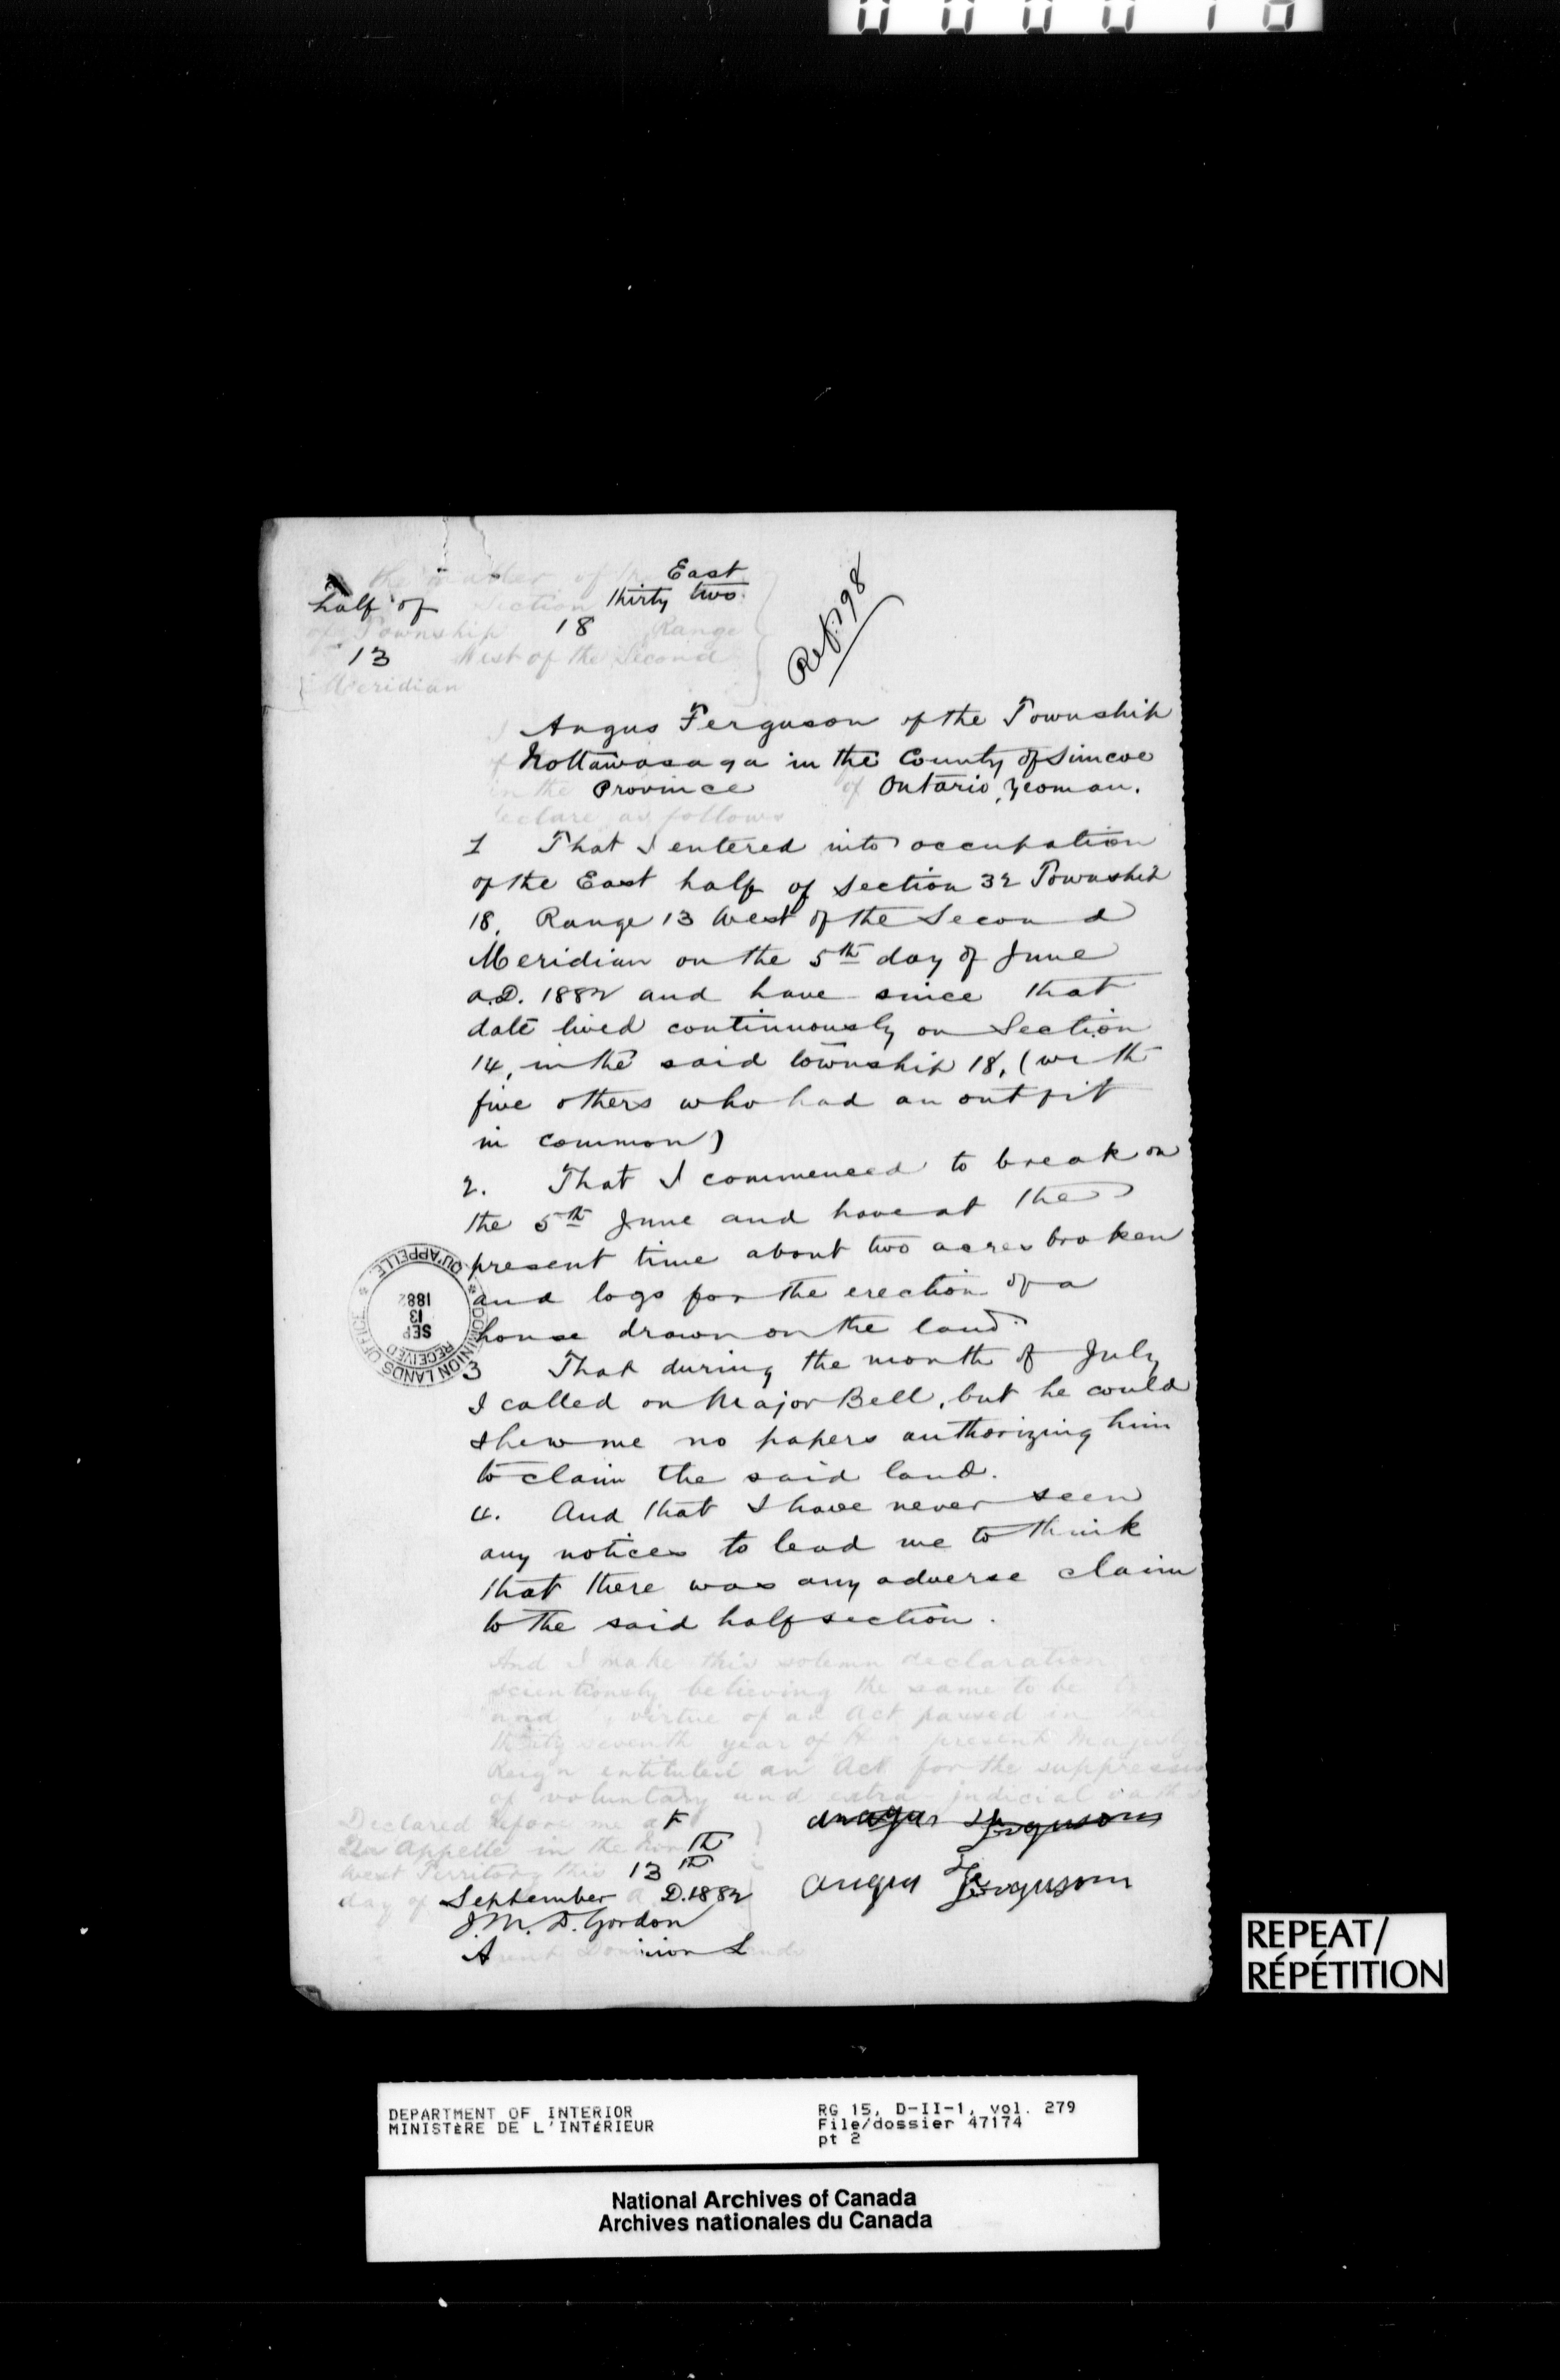 the matter of the East
half of Section thirty two
of Township 18 Range
13 West of the Second
Meridian
Ref. 198
I Angus Ferguson of the Township
of Nottawasaga in the County of Simcoe
in the Province of Ontario, Yeoman.
declare as follows
1 That I entered into occupation
of the East half of Section 32 Township
18, Range 13 West of the Second
Meridian on the 5th day of June
A.D. 1882 and have since that
date lived continuously on Section
14, in the said township 18, (with
five others who had an outfit
in common)
2. That I commenced to break on
the 5th June and have at the
present time about two acres broken
and logs for the erection of a
house drawn on the land.
3 That during the month of July
I called on Major Bell, but he could
shew me no papers authorizing him
to claim the said land.
4. And that I have never seen
any notices to lead me to think
that there was any adverse claim
to the said half section.
And I make this solemn declaration con
scientiously believing the same to be
and virtue of an Act passed in the
thirty seventh year of Her present Majesty
Reign entituled an Act for the suppression
of voluntary and extra-judicial oaths
Declared before me at
Qu Appelle in the North
West Territory this 13th
day of September A D. 1882
J. M. D. Gordon
Agent Dominion Lands
Angus Ferguson
Angus Ferguson
DOMINION LANDS OFFICE
QU'APPELLE
RECEIVED
SEP
13
1882
REPEAT/
RÉPÉTITION
DEPARTMENT OF INTERIOR
MINISTÈRE DE L'INTÉRIEUR
RG 15, D-II-1, vol. 279
File/dossier 47174
pt 2
National Archives of Canada
Archives nationales du Canada